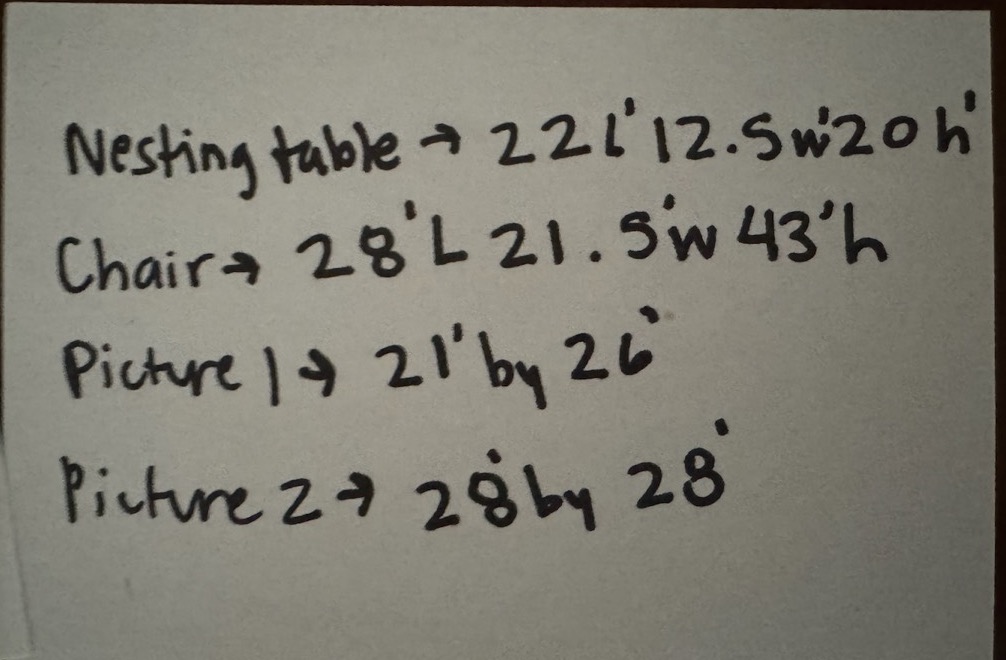 Nesting table → 22l' 12.5w' 20h'
Chair → 28'L 21.5'w 43'h
Picture 1 → 21' by 26'
Picture 2 → 28' by 28'